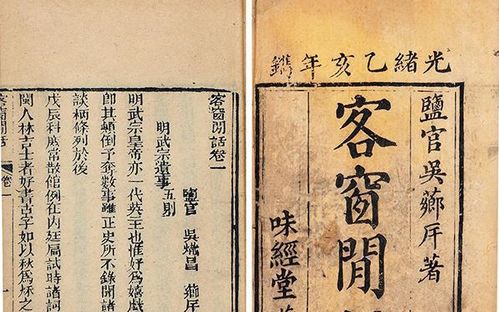 光緒乙亥年鐫
鹽官吳薌厈著
客窗閒
味經堂
客窗閒話卷一
鹽官 吳熾昌 薌厈
明武宗遺事 五則
明武宗皇帝亦一代英主也惟好為嬉戲
即其顛倒予奪數事雖正史所不錄聞諸
談柄條列於後
戊辰科庶常散館例在內廷扃試時諸詞
閩人林吉士者好書古字如以秋為秌之
客窗閒話 卷一 一